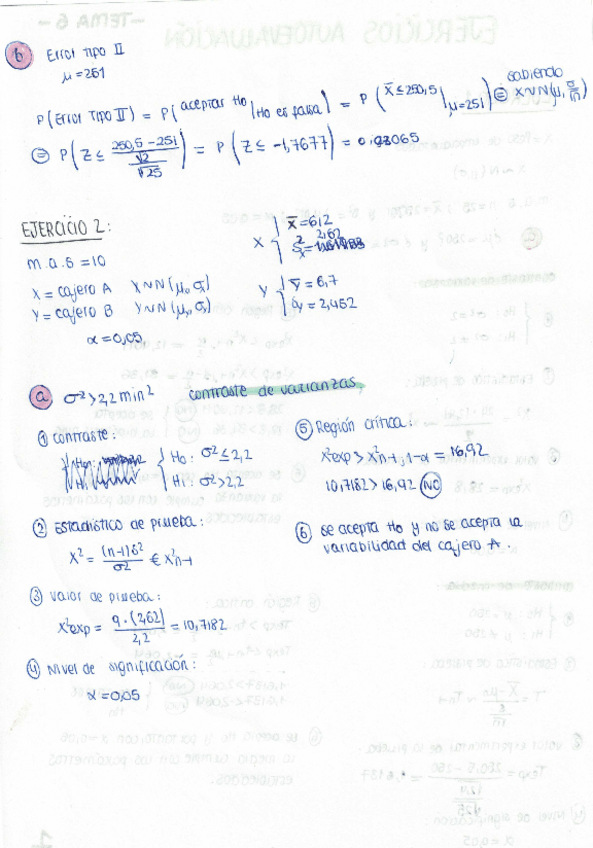 b Error tipo II
μ = 251
P(Error tipo II) = P(aceptar H₀ | H₀ es falsa) = P(X̄ ≤ 250,5 | μ=251) = sabiendo X ~ N(μ, σ/√n)
= P(Z ≤ (250,5 - 251)/(√2/√25)) = P(Z ≤ -1,7677) =
EJERCICIO 2:
m.a.s = 10
X = cajero A X ~ N(μ, σx)
Y = cajero B Y ~ N(μ, σx)
α = 0,05
X { X̄ = 6,12
S²x = 2,62
Y { ȳ = 6,7
= 2,452
a σ² > 2,2 min² contraste de varianzas.
① contraste:
{ H₀: σ² ≤ 2,2
H₁: σ² > 2,2
② Estadístico de prueba:
X² = (n-1)S²/σ² ∈ X²n-1
③ valor de prueba:
X²exp = 9·(2,62)/2,2 = 10,7182
④ Nivel de significación:
α = 0,05
⑤ Región crítica:
X²exp > X²n-1, 1-α = 16,92
10,7182 > 16,92 NO
⑥ se acepta H₀ y no se acepta la
variabilidad del cajero A.